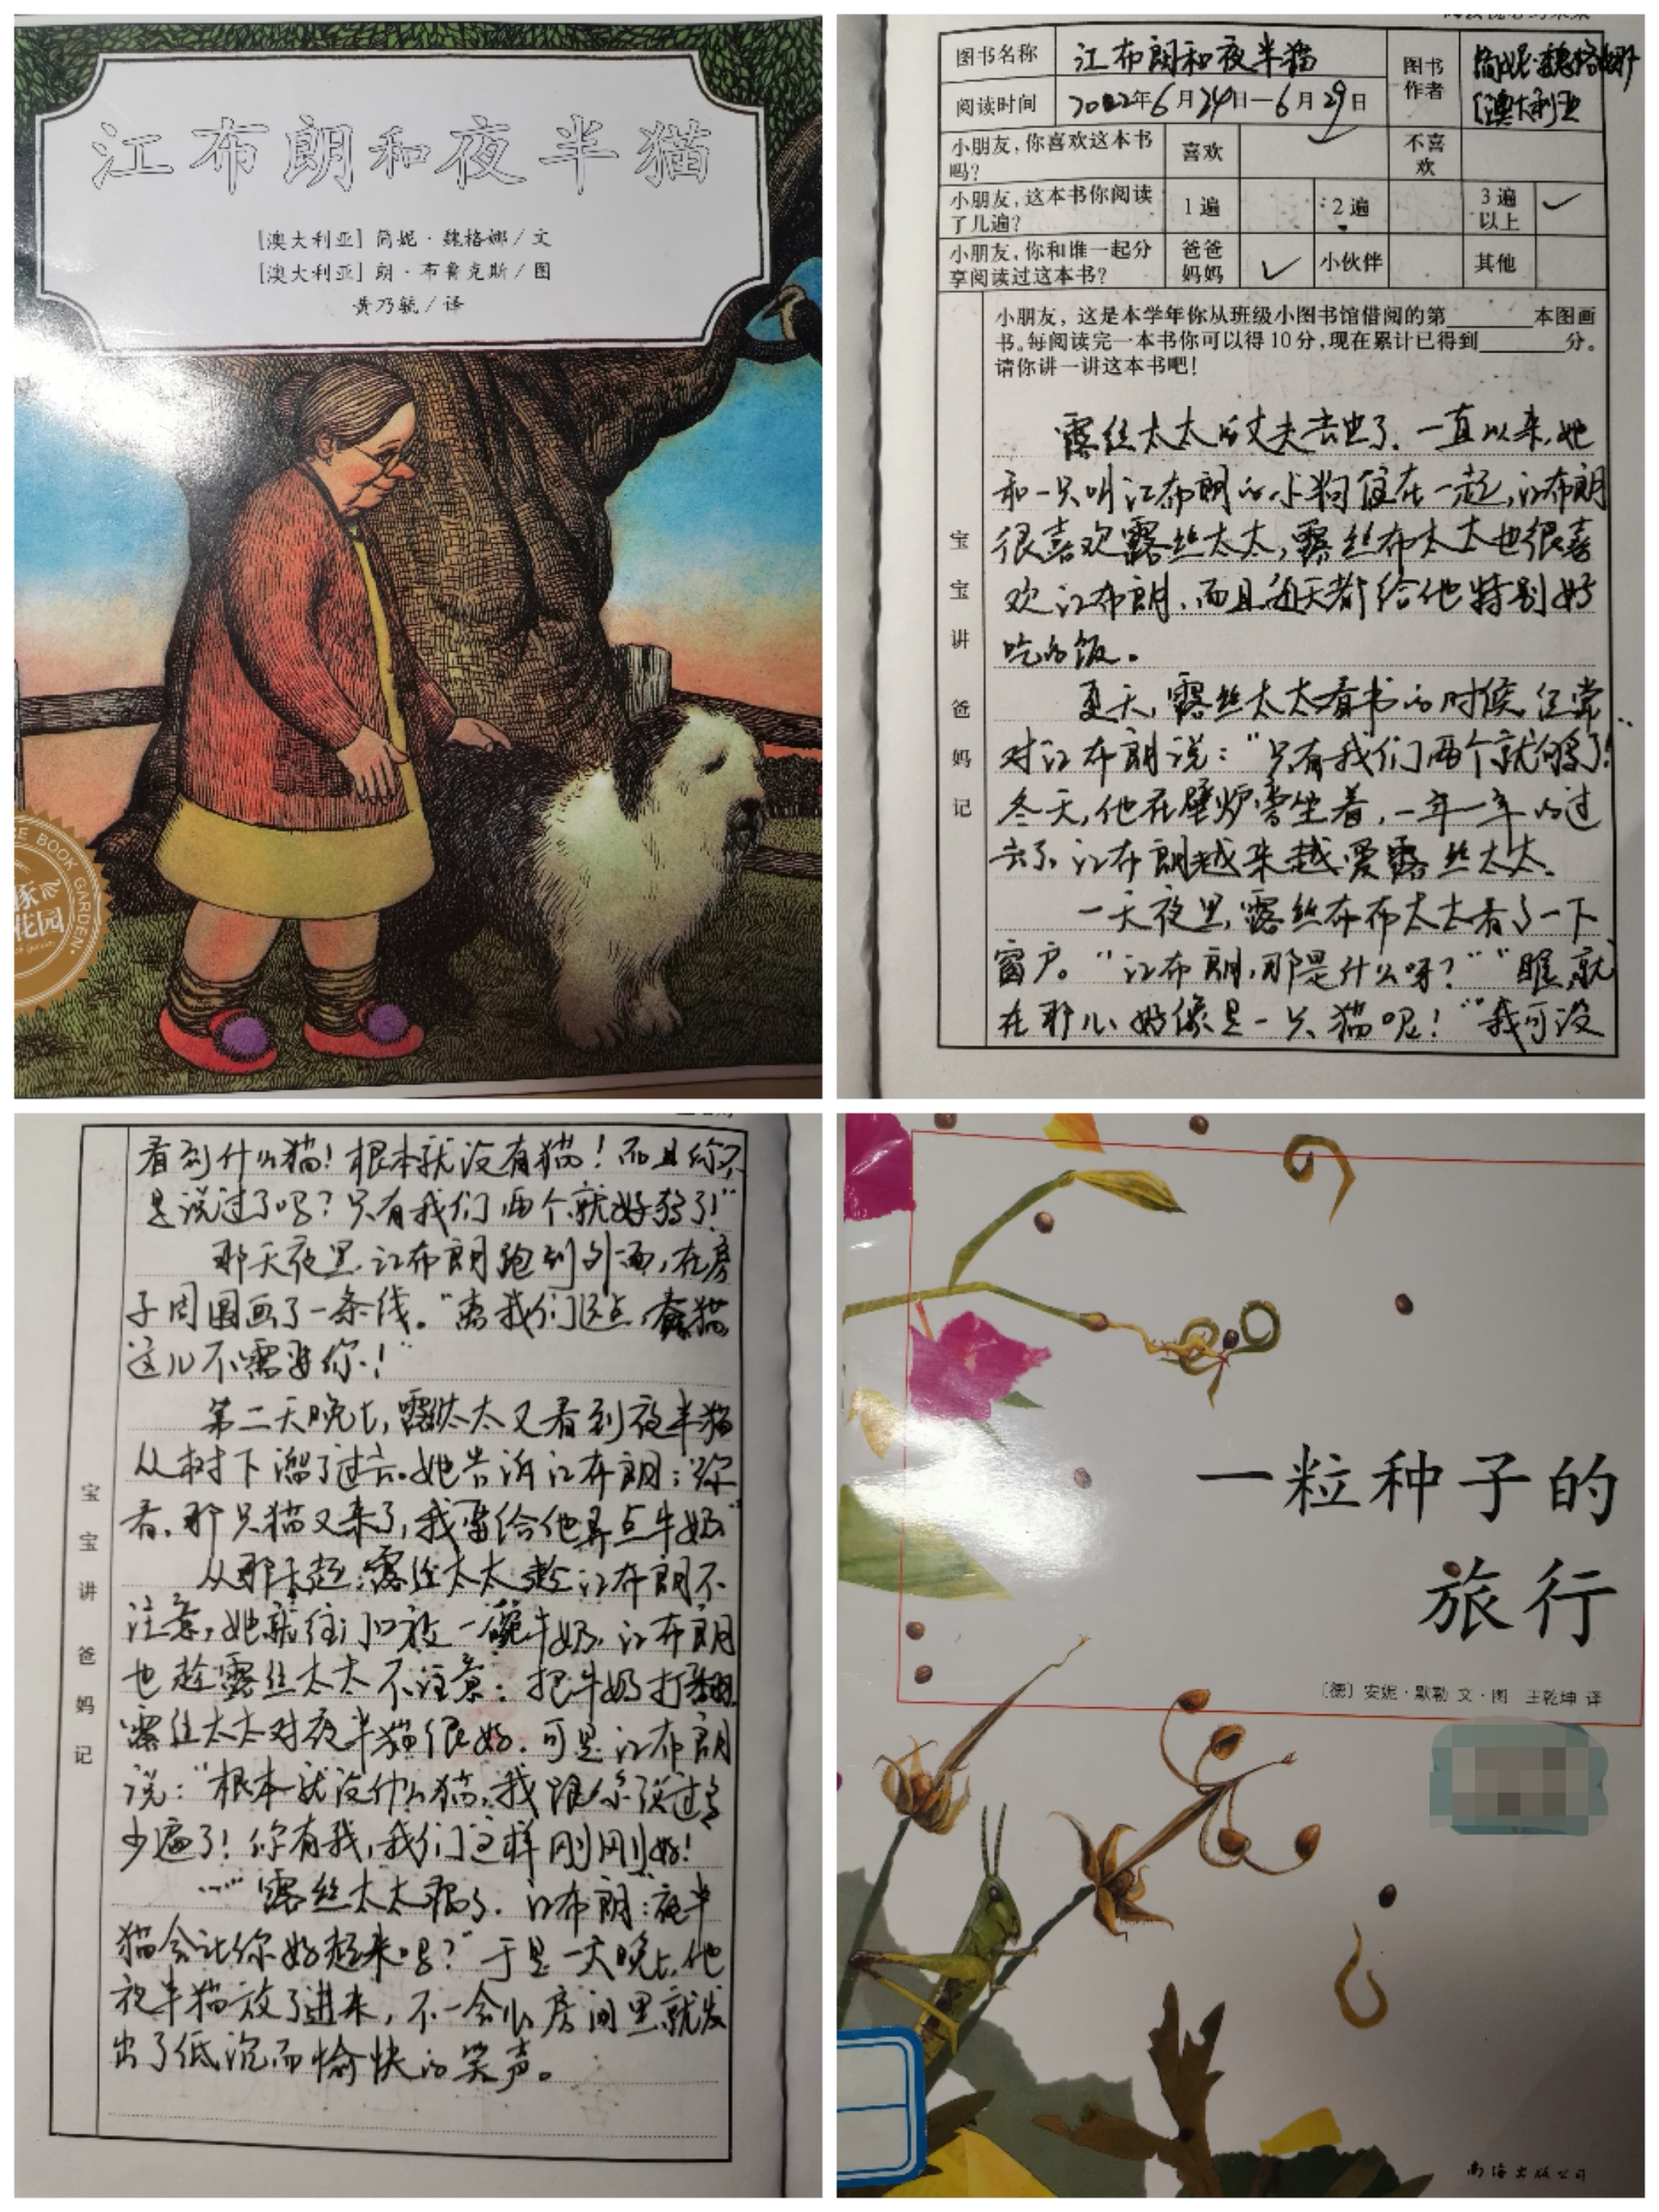 江布朗和夜半猫
[澳大利亚] 简妮·魏格娜/文
[澳大利亚] 朗·布鲁克斯/图
黄乃毓/译
BOOK GARDEN
花园
图书名称
江布朗和夜半猫
图书作者
简妮·魏格娜
[澳大利亚]
阅读时间
2022年6月24日—6月29日
小朋友,你喜欢这本书吗?
喜欢
不喜欢
小朋友,这本书你阅读了几遍?
1遍
2遍
3遍以上
小朋友,你和谁一起分享阅读过这本书?
爸爸妈妈
小伙伴
其他
小朋友,这是本学年你从班级小图书馆借阅的第 本图画
书。每阅读完一本书你可以得10分,现在累计已得到 分。
请你讲一讲这本书吧!
宝宝讲 爸妈记
露丝太太的丈夫去世了.一直以来,她
和一只叫江布朗的小狗住在一起,江布朗
很喜欢露丝太太,露丝布太太也很喜
欢江布朗,而且每天都给他特别好
吃的饭。
夏天,露丝太太看书的时候,经常
对江布朗说:“只有我们两个就够了!”
冬天,他在壁炉旁坐着,一年一年的过
去了,江布朗越来越爱露丝太太.
一天夜里,露丝布布太太看了一下
窗户。“江布朗,那是什么呀?”“瞧,就
在那儿,好像是一只猫呢!”“我可没
看到什么猫!根本就没有猫!而且你不
是说过了吗?只有我们两个就好够了!”
那天夜里,江布朗跑到外面,在房
子周围画了一条线。“离我们远点,猫
这儿不需要你!”
第二天晚上,露丝太太又看到夜半猫
从树下溜了过去。她告诉江布朗:“你
看,那只猫又来了,我要给他弄点牛奶”
从那天起,露丝太太趁江布朗不
注意,她就往门口放一碗牛奶,江布朗
也趁露丝太太不注意,把牛奶打翻.
露丝太太对夜半猫很好.可是江布朗
说:“根本就没什么猫,我跟你说过多
少遍了!你有我,我们这样刚刚好!
……“露丝太太病了.江布朗:夜半
猫会让你好起来吗?”于是一天晚上,他
夜半猫放了进来,不一会儿房间里就发
出了低沉而愉快的笑声。
宝宝讲 爸妈记
一粒种子的
旅行
[德] 安妮·默勒 文·图 王乾坤 译
南海出版公司